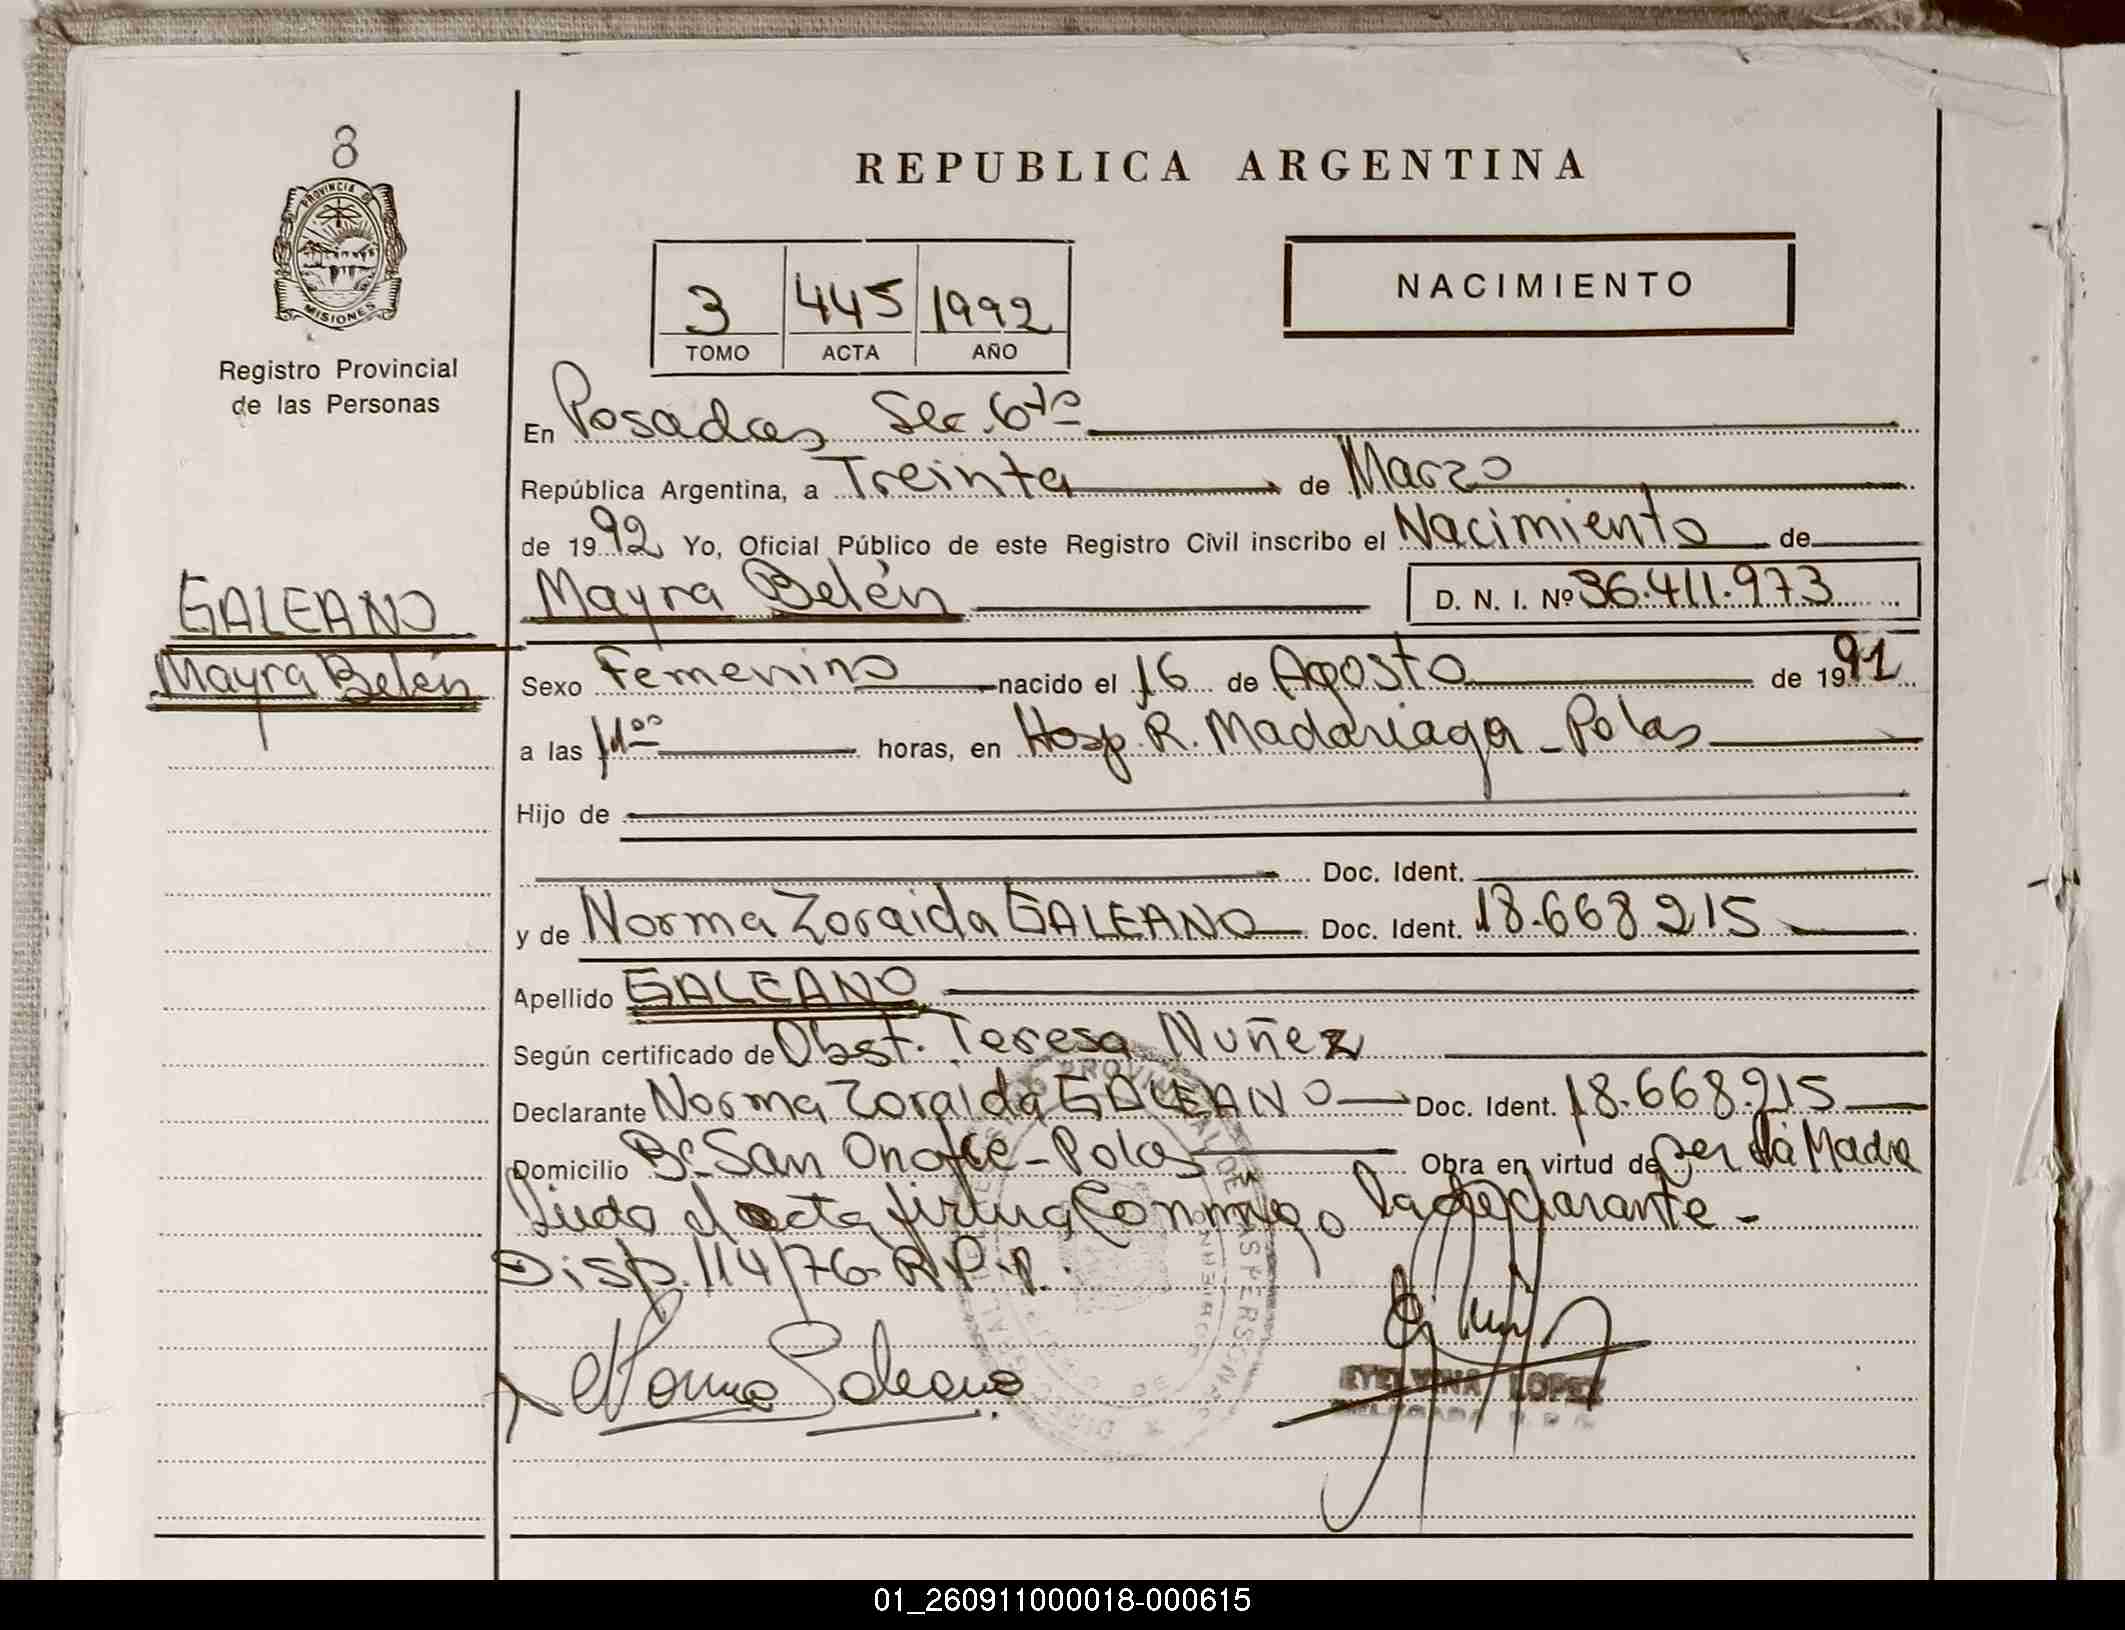 8
PROVINCIA DE
MISIONES
Registro Provincial
de las Personas
GALEANO
Mayra Belén
REPUBLICA ARGENTINA
3 445 1992
TOMO ACTA AÑO
NACIMIENTO
En Posadas Sec. 6ta
República Argentina, a Treinta de Marzo
de 1992 Yo, Oficial Público de este Registro Civil inscribo el Nacimiento de
Mayra Belén D. N. I. Nº 36.411.973
Sexo Femenino nacido el 16 de Agosto de 1991
a las 11oo horas, en Hosp. R. Madariaga - Pdas
Hijo de
Doc. Ident.
y de Norma Zoraida GALEANO Doc. Ident. 18.668.215
Apellido GALEANO
Según certificado de Obst. Teresa Nuñez
Declarante Norma Zoraida GALEANO Doc. Ident. 18.668.215
Domicilio Bº San Onofre - Pdas Obra en virtud de ser la Madre
Leida el acta firma Conmigo la declarante -
Disp. 114/76. R.P.P.
Norma Galeano
ETELVINA LOPEZ
DELEGADA R. P. P.
01_260911000018-000615